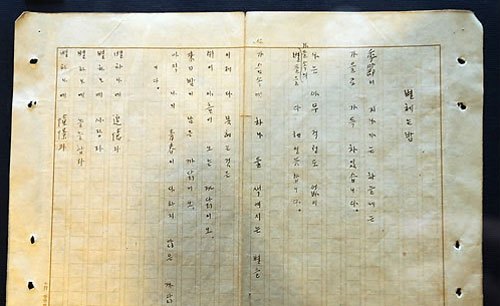 별헤는밤
季節이 지나가는 하늘에는
가을로 가득 차있습니다.
나는 아무 걱정도 없이
가을속의 별들을 다 헤일듯합니다.
가슴속에 하나 둘 색여지는 별을
이제 다 못헤는것은
쉬이 아츰이 오는 까닭이오,
來日밤이 남은 까닭이오,
아직 나의 靑春이 다하지 않은 까닭
니다.
별하나에 追憶과
별하나에 사랑과
별하나에 쓸쓸함과
별하나에 憧憬과